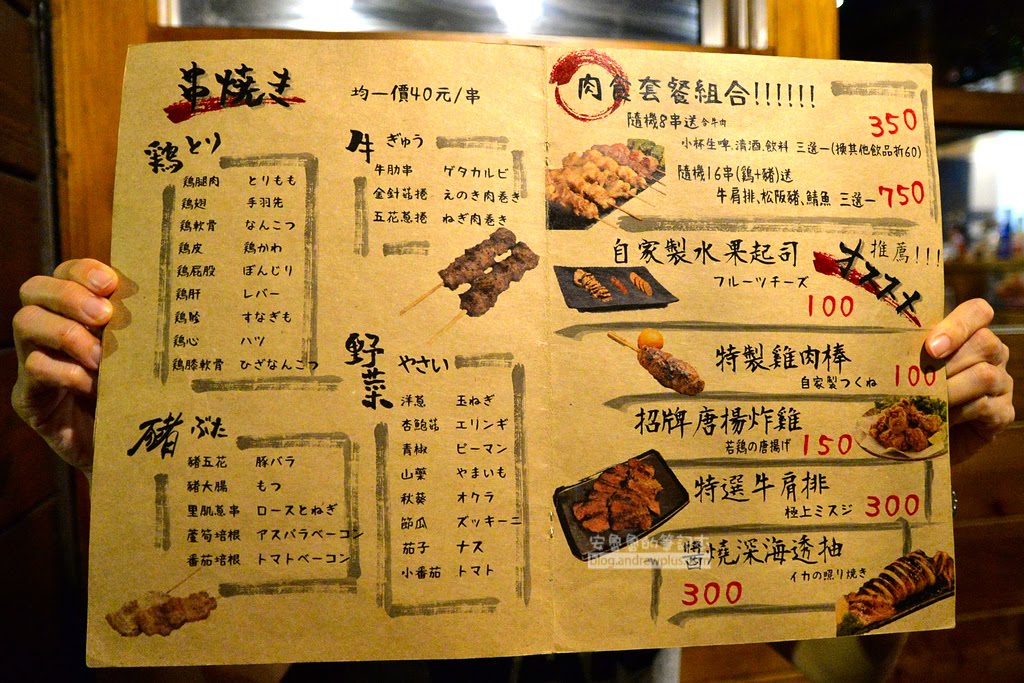 串焼き
均一價40元/串
鶏 とり
鶏腿肉 とりもも
鶏翅 手羽先
鶏軟骨 なんこつ
鶏皮 鶏かわ
鶏屁股 ぼんじり
鶏肝 レバー
鶏胗 すなぎも
鶏心 ハツ
鶏膝軟骨 ひざなんこつ
豬 ぶた
豬五花 豚バラ
豬大腸 もつ
里肌蔥串 ロースとねぎ
蘆筍培根 アスパラベーコン
番茄培根 トマトベーコン
牛 ぎゅう
牛肋串 ゲタカルビ
金針菇捲 えのき肉巻き
五花蔥捲 ねぎ肉巻き
野菜 やさい
洋蔥 玉ねぎ
杏鮑菇 エリンギ
青椒 ピーマン
山藥 やまいも
秋葵 オクラ
節瓜 ズッキーニ
茄子 ナス
小番茄 トマト
肉食套餐組合!!!!!!
隨機8串送 含牛肉
350
小杯生啤.清酒.飲料 三選一(換其他飲品折60)
隨機16串(鶏+豬)送
牛肩排、松阪豬、鯖魚 三選一 750
自家製水果起司
フルーツチーズ
100
オススメ
推薦!!!
特製雞肉棒
自家製つくね 100
招牌唐揚炸雞
若鶏の唐揚げ 150
特選牛肩排
極上ミスジ 300
醬燒深海透抽
イカの照り焼き
300
安魯魯的筆記本
blog.andrewplus.